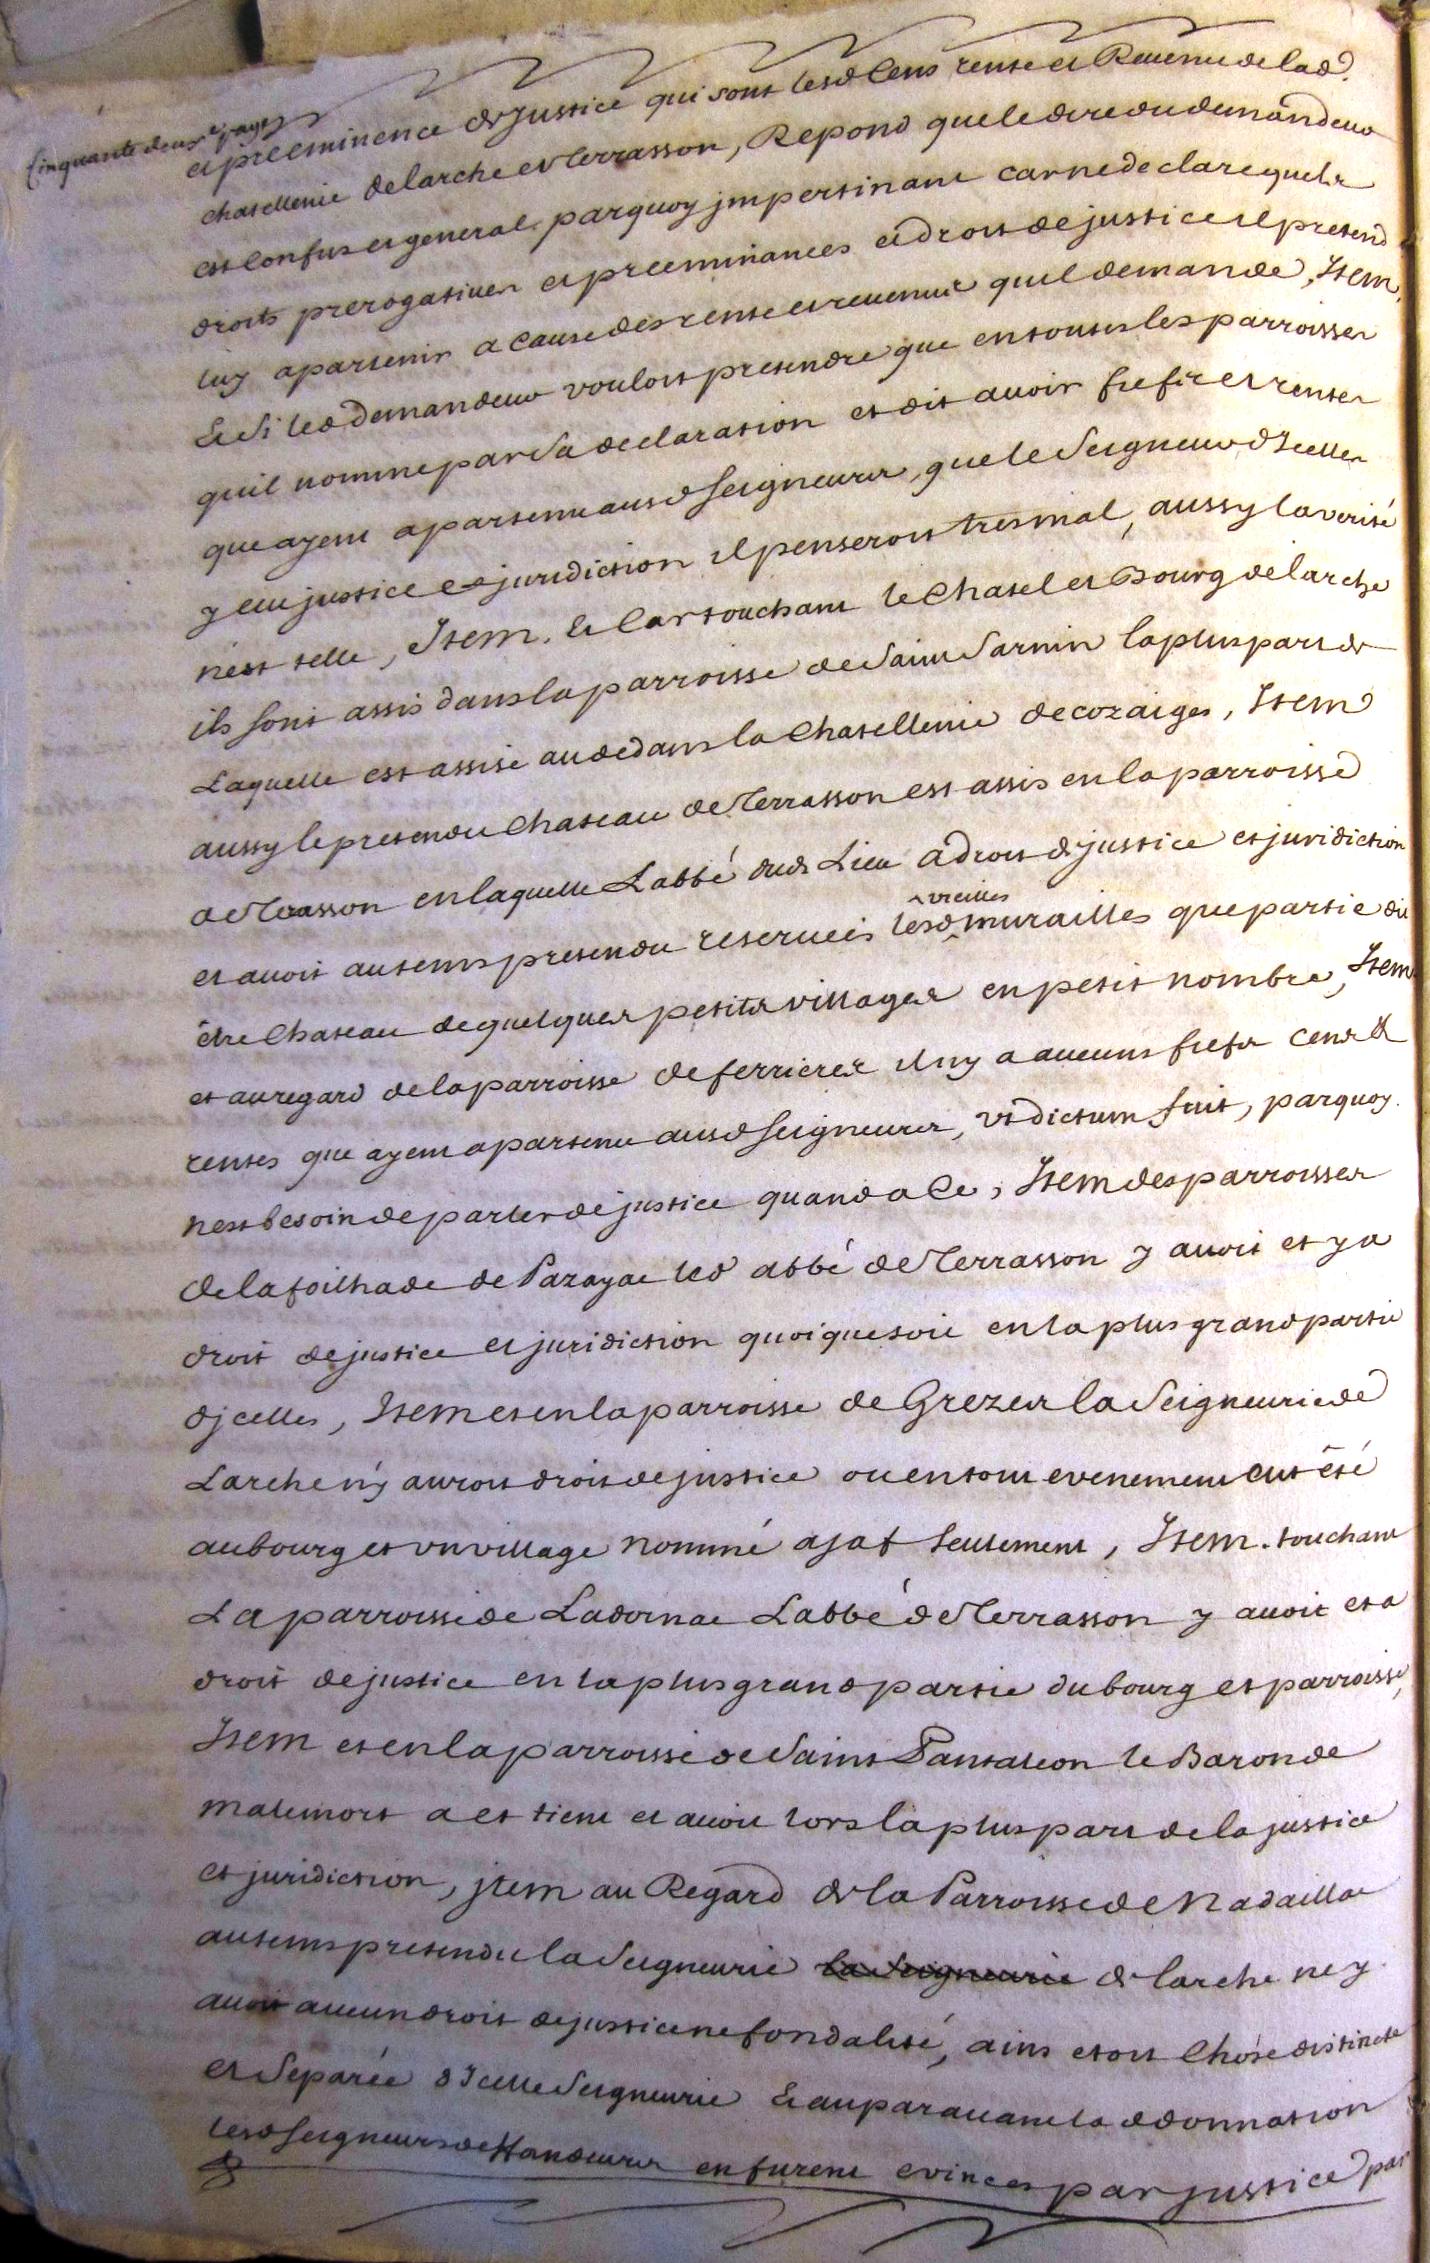 Cinquante deuxe page
et preeminence de Justice qui sont lesd Cens rente et Revenu de lad.
chatellenie de larche et terrasson, Repond que le dire du demandeur
est Confus et general parquoy jmpertinant car ne declare quels
droits prerogatives et preeminances et droit de justice il pretend
luy apartenir a Cause des rente et revenus quil demande, Item,
Et si led demandeur vouloit pretendre que en toutes les parroisses
quil nomme par sa declaration et dit avoir fiefs et rentes
que ayent apartenu ausd seigneurs, que le seigneur d'Icelles
y eut justice et juridiction il penseroit tres mal, aussy la verité
n'est telle, Item. Et Car touchant le Chatel et Bourg de larche
ils sont assis dans la parroisse de saint sarnin la plus part de
Laquelle est assise au dedans la Chatellenie de cozaiges, Item
aussy le pretendu Chateau de terrasson est assis en la parroisse
de terasson en laquelle Labbé dud Lieu a droit de justice et juridiction
et avoit au tems pretendu reservées lesd vieilles murailles que partie di
être Chateau de quelques petits villages en petit nombre, Item
et au regard de la parroisse de ferrieres il ny a aucuns fiefs Cens &
rentes que ayent apartenu ausd seigneurs, vt dictum fuit, parquoy
nest besoin de parler de justice quand a Ce, Item des parroisses
de la foilhade de Pazayac led abbé de terrasson y avoit et y a
droit de justice et juridiction quoique soit en la plus grand partie
djcelles, Item et en la parroisse de Grezes la seigneurie de
Larche n'y auroit droit de justice ou en tout evenement eut été
au bourg et vn village nommé ajat seulement, Item. touchant
La parroisse de Ladornac Labbé de terrasson y avoit et a
droit de justice en la plus grand partie du bourg et parroisse,
Item et en la parroisse de saint Pantaleon le Baron de
malemort a et tient et avoit lors la plus part de la justice
et juridiction, jtem au Regard de la Parroisse de Nadaillac
au tems pretendu la seigneurie la seigneurie de larche ne y
avoit aucun droit de justice ne fondalité, ains etoit Chose distincte
et separée d'Icelle seigneurie Et auparavant la d donnation
lesd seigneurs de en furent evinces par justice par